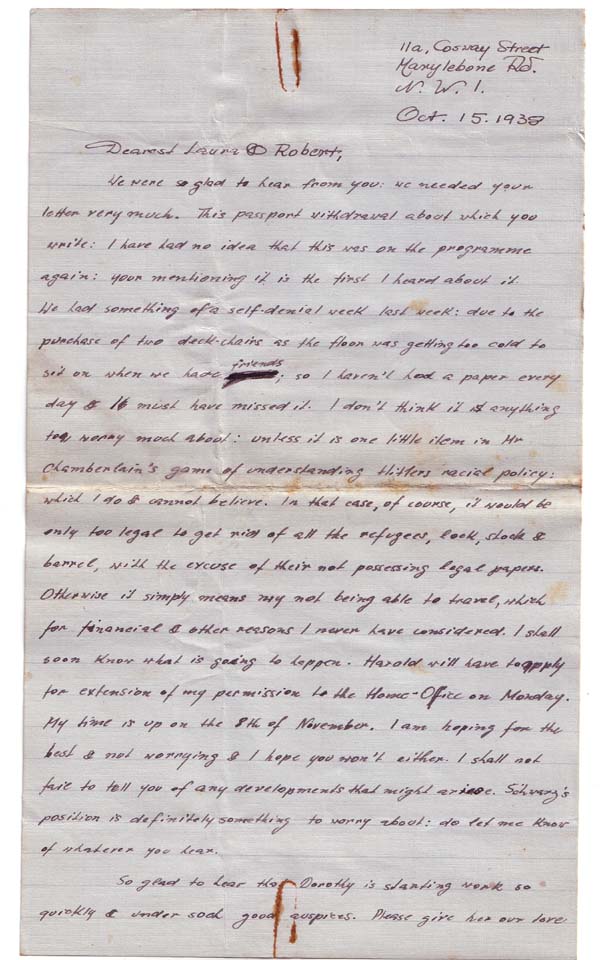 11a, Cosway Street
Marylebone Rd.
N. W. 1.
Oct. 15. 1938
Dearest Laura & Robert,
We were so glad to hear from you: we needed your
letter very much. This passport withdrawal about which you
write: I have had no idea that this was on the programme
again: your mentioning it is the first I heard about it.
We had something of a self-denial week last week: due to the
purchase of two deck-chairs as the floor was getting too cold to
sit on when we have friends; so I haven't had a paper every
day & must have missed it. I don't think it is anything
to worry much about: unless it is one little item in Mr
Chamberlain's game of understanding Hitlers racial policy:
which I do & cannot believe. In that case, of course, it would be
only too legal to get rid of all the refugees, lock, stock &
barrel, with the excuse of their not possessing legal papers.
Otherwise it simply means my not being able to travel, which
for financial & other reasons I never have considered. I shall
soon know what is going to happen. Harold will have to apply
for extension of my permission to the Home-Office on Monday.
My time is up on the 8th of November. I am hoping for the
best & not worrying & I hope you won't either. I shall not
fail to tell you of any developments that might arise. Schwarz's
position is definitely something to worry about: do let me know
of whatever you hear.
So glad to hear that Dorothy is starting work so
quickly & under such good auspices. Please give her our love